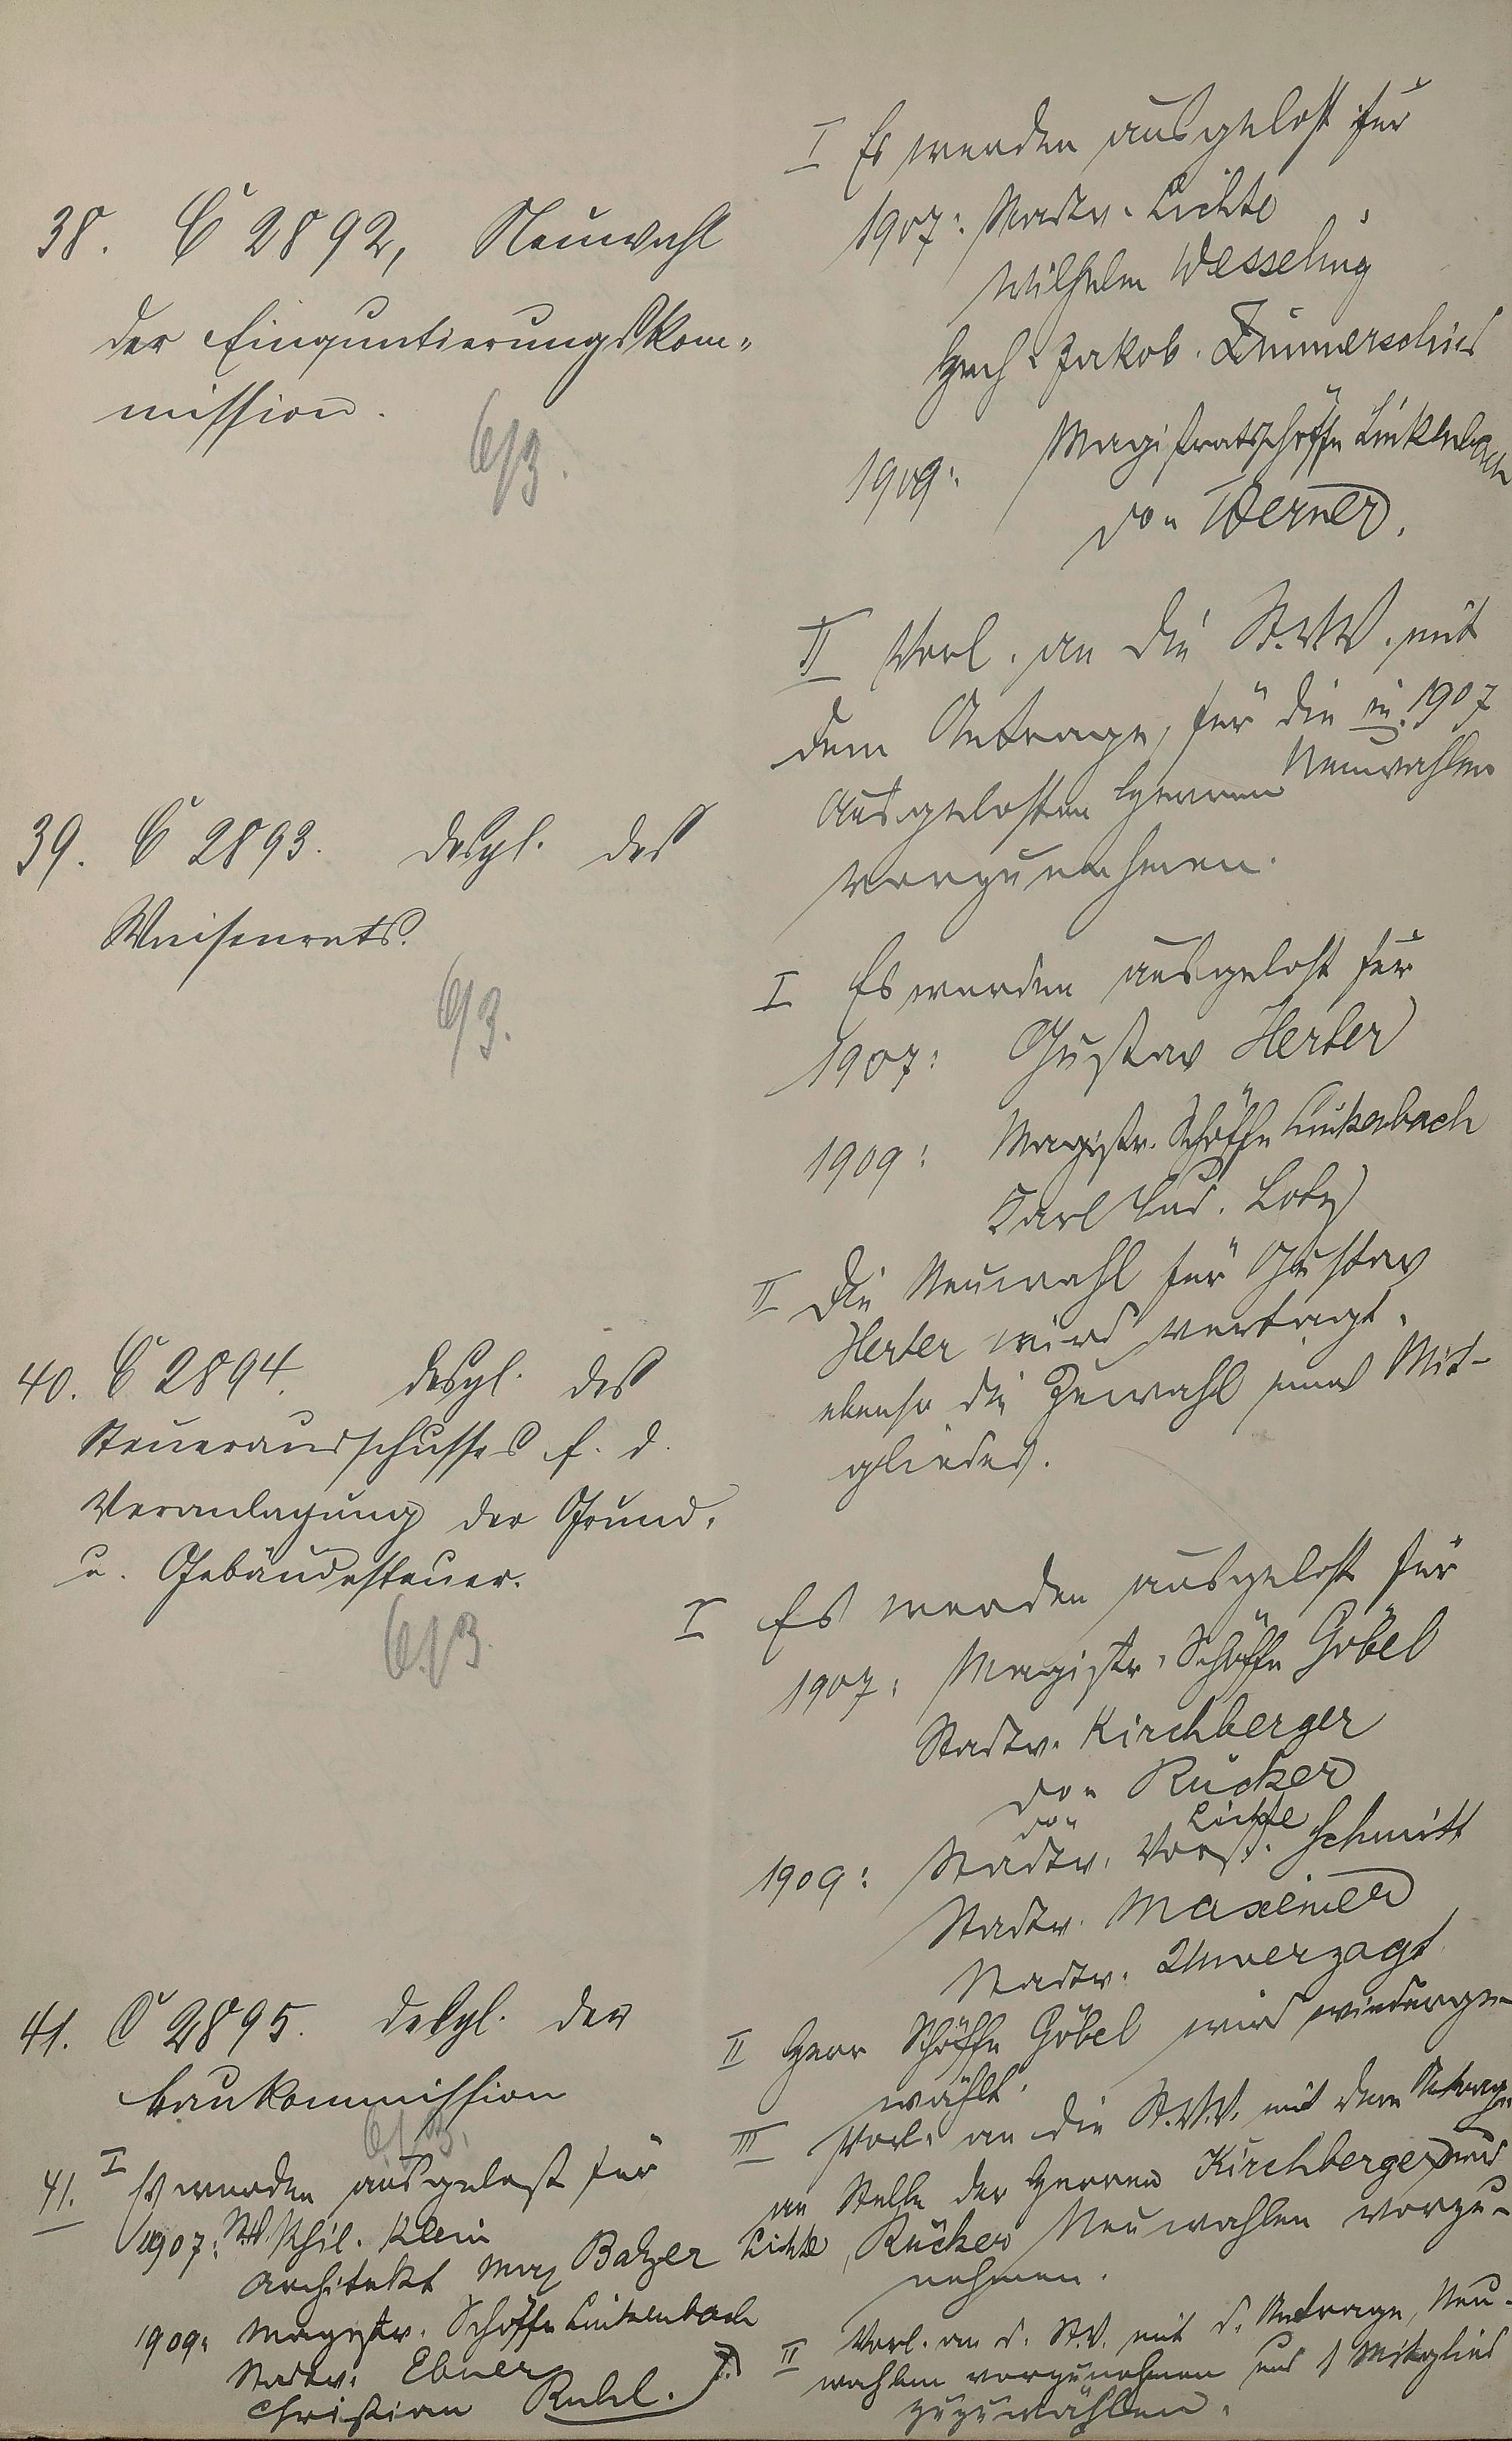 38. C 2892, Neuwahl
der Einquartierungskom-
mission.
6/3.
I Es werden ausgelost für
1907: Stadtv. Lichte,
Wilhelm Wesseling
Jakob Zimmerschied
1909: Magistratsschöffe Linkenbach
do. Werner.
II Vorl. an die St.V.V. mit
dem Antrage, für die in 1907
ausgelosten Herren Neuwahlen
vorzunehmen.
39. C 2893. desgl. des
Waisenrats.
6/3.
I Es werden ausgelost für
1907: Gustav Herber
1909: Magistr. Schöffe Linkenbach
Karl Lud. Lotz
II Die Neuwahl für Gustav
Herber wird vertagt.
ebenso die Zuwahl eines Mit-
gliedes.
40. C 2894. desgl. des
Steuerausschusses f. d.
Veranlagung der Grund-
u. Gebäudesteuer.
6/3.
I Es werden ausgelost für
1907: Magistr. Schöffe Göbel
Stadtv. Kirchberger
do. Rücker
do. Lichte
1909: Stadtv. Vorst. Schmitt
Stadtv. Maxeiner
Stadtv. Unverzagt
II Herr Schöffe Göbel wird wiederge-
wählt.
III Vorl. an die St.V.V. mit dem Antrage,
an Stelle der Herren Kirchberger und
Lichte, Rücker Neuwahlen vorzu-
nehmen.
41. C 2895. desgl. der
Baukommission
6/3.
41. I Es werden ausgelost für
1907: Phil. Klein
Architekt Max Balzer
1909: Magistr. Schöffe Linkenbach
Stadtv. Ebner
Christian Ruhl.
II Vorl. an d. St.V. mit d. Antrage, Neu-
wahlen vorzunehmen und 1 Mitglied
zuzuwählen.